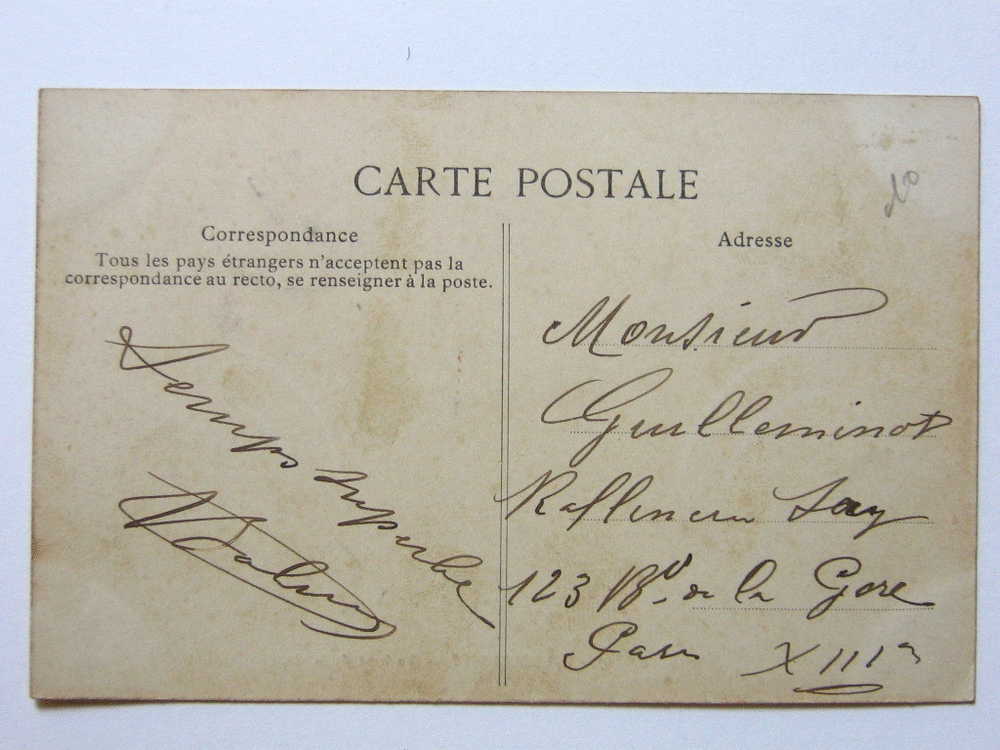 CARTE POSTALE
Correspondance
Tous les pays étrangers n'acceptent pas la
correspondance au recto, se renseigner à la poste.
Temps superbe
Adresse
Monsieur
Guilleminot
Raffinerie Say
123 Bd de la Gare
Paris XIIIe